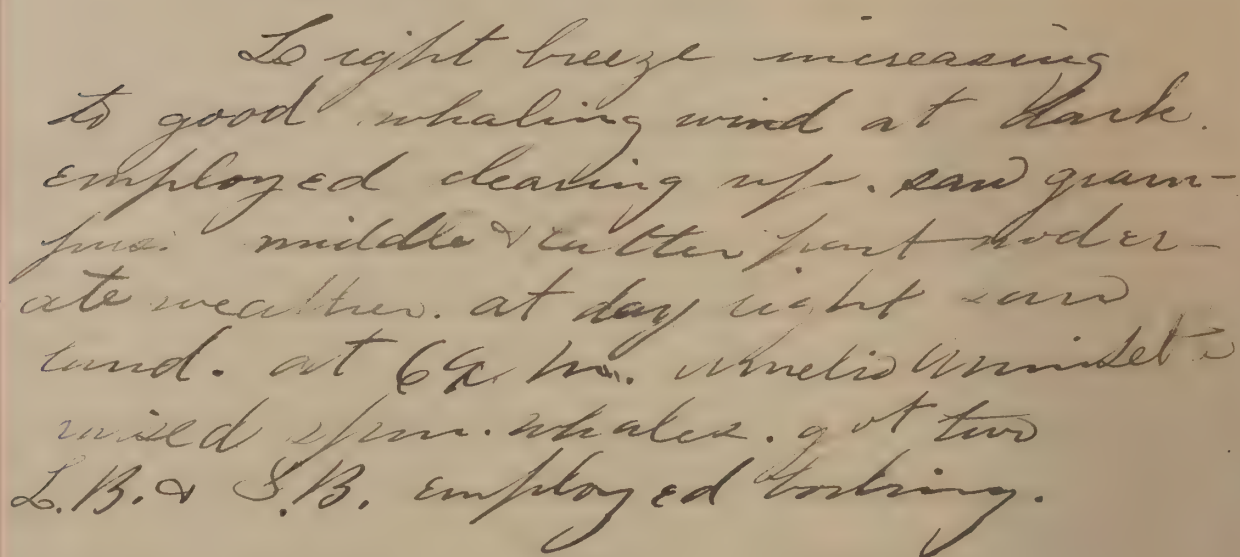 Light breeze increasing
to good whaling wind at dark.
employed clearing up. saw gram-
pus. middle & latter part moder-
ate weather. at day light saw
land. at 6 a. m.
raised spm. whales. got two
L.B. & S.B. employed